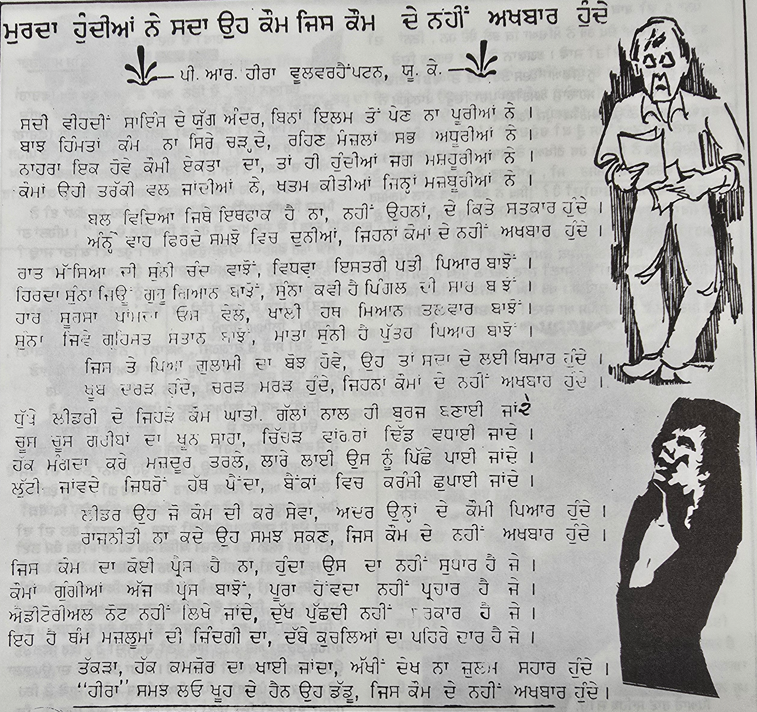 ਮੁਰਦਾ ਹੁੰਦੀਆਂ ਨੇ ਸਦਾ ਉਹ ਕੌਮ ਜਿਸ ਕੌਮ ਦੇ ਨਹੀਂ ਅਖਬਾਰ ਹੁੰਦੇ
ਪੀ. ਆਰ. ਹੀਰਾ ਵੂਲਵਰਹੈਂਪਟਨ, ਯੂ. ਕੇ.
ਸਦੀ ਵੀਹਵੀਂ ਸਾਇੰਸ ਦੇ ਯੁੱਗ ਅੰਦਰ, ਬਿਨਾਂ ਇਲਮ ਤੋਂ ਪੈਣ ਨਾ ਪੂਰੀਆਂ ਨੇ ।
ਬਾਝ ਹਿੰਮਤਾਂ ਕੰਮ ਨਾ ਸਿਰੇ ਚੜ੍ਹਦੇ, ਰਹਿਣ ਮੰਜ਼ਲਾਂ ਸਭ ਅਧੂਰੀਆਂ ਨੇ ।
ਨਾਹਰਾ ਇਕ ਹੋਵੇ ਕੌਮੀ ਏਕਤਾ ਦਾ, ਤਾਂ ਹੀ ਹੁੰਦੀਆਂ ਜਗ ਮਸ਼ਹੂਰੀਆਂ ਨੇ ।
ਕੌਮਾਂ ਓਹੀ ਤਰੱਕੀ ਵਲ ਜਾਂਦੀਆਂ ਨੇ, ਖਤਮ ਕੀਤੀਆਂ ਜਿਨ੍ਹਾਂ ਮਜ਼ਬੂਰੀਆਂ ਨੇ ।
ਬਲ ਵਿਦਿਆ ਜਿਥੇ ਇਥਫਾਕ ਹੈ ਨਾ, ਨਹੀਂ ਉਹਨਾਂ, ਦੇ ਕਿਤੇ ਸਤਕਾਰ ਹੁੰਦੇ ।
ਅੰਨ੍ਹੇ ਵਾਹ ਫਿਰਦੇ ਸਮਝੋ ਵਿਚ ਦੁਨੀਆਂ, ਜਿਹਨਾਂ ਕੌਮਾਂ ਦੇ ਨਹੀਂ ਅਖਬਾਰ ਹੁੰਦੇ ।
ਰਾਤ ਮੱਸਿਆ ਦੀ ਸੁੰਨੀ ਚੰਦ ਵਾਝੋਂ, ਵਿਧਵਾ ਇਸਤਰੀ ਪਤੀ ਪਿਆਰ ਬਾਝੋਂ ।
ਹਿਰਦਾ ਸੁੰਨਾ ਜਿਉਂ ਗੁਰੂ ਗਿਆਨ ਬਾਝੋਂ, ਸੁੰਨਾ ਕਵੀ ਹੈ ਪਿੰਗਲ ਦੀ ਸਾਰ ਬਝੋਂ ।
ਹਾਰ ਸੂਰਮਾ ਓਸ ਵੇਲੇ, ਖਾਲੀ ਹਥ ਮਿਆਨ ਤਲਵਾਰ ਬਾਝੋਂ ।
ਸੁਨਾ ਜਿਵੇਂ ਗ੍ਰਹਿਸਤ ਸੰਤਾਨ ਬਾਝੋਂ, ਮਾਤਾ ਸੁੰਨੀ ਹੈ ਪੁੱਤਰ ਪਿਆਰ ਬਾਝੋਂ ।
ਜਿਸ ਤੇ ਪਿਆ ਗੁਲਾਮੀ ਦਾ ਬੋਝ ਹੋਵੇ, ਉਹ ਤਾਂ ਸਦਾ ਦੇ ਲਈ ਬਿਮਾਰ ਹੁੰਦੇ ।
ਖੂਬ ਦਰੜ ਹੁੰਦੇ, ਚਰੜ ਮਰੜ ਹੁੰਦੇ, ਜਿਹਨਾ ਕੌਮਾਂ ਦੇ ਨਹੀਂ ਅਖਬਾਰ ਹੁੰਦੇ ।
ਭੁੱਖੇ ਲੀਡਰੀ ਦੇ ਜਿਹੜੇ ਕੌਮ ਘਾਤੀ, ਗੱਲਾਂ ਨਾਲ ਹੀ ਬੁਰਜ ਬਣਾਈ ਜਾਂਦੇ
ਚੂਸ ਚੂਸ ਗਰੀਬਾਂ ਦਾ ਖੂਨ ਸਾਹਾ, ਚਿੱਚੜ ਵਾਂਗਰਾਂ ਢਿੱਡ ਵਧਾਈ ਜਾਦੇ ।
ਹੱਕ ਮੰਗਦਾ ਕਰੇ ਮਜ਼ਦੂਰ ਤਰਲੇ, ਲਾਰੇ ਲਾਈ ਉਸ ਨੂੰ ਪਿੱਛੇ ਪਾਈ ਜਾਂਦੇ ।
ਲੁੱਟੀ ਜਾਂਵਦੇ ਜਿਧਰੋਂ ਹੱਥ ਪੈਂਦਾ, ਬੈਂਕਾਂ ਵਿਚ ਕਰੰਮੀ ਛੁਪਾਈ ਜਾਂਦੇ ।
ਲੀਡਰ ਉਹ ਜੋ ਕੌਮ ਦੀ ਕਰੇ ਸੇਵਾ, ਅਦਰ ਉਨ੍ਹਾਂ ਦੇ ਕੌਮੀ ਪਿਆਰ ਹੁੰਦੇ ।
ਰਾਜਨੀਤੀ ਨਾ ਕਦੇ ਉਹ ਸਮਝ ਸਕਣ, ਜਿਸ ਕੌਮ ਦੇ ਨਹੀਂ ਅਖਬਾਰ ਹੁੰਦੇ ।
ਜਿਸ ਕੌਮ ਦਾ ਕੋਈ ਪ੍ਰੈਸ ਹੈ ਨਾ, ਹੁੰਦਾ ਉਸ ਦਾ ਨਹੀਂ ਸੁਧਾਰ ਹੈ ਜੇ ।
ਕੌਮਾਂ ਗੁੰਗੀਆਂ ਅੱਜ ਪ੍ਰੈਸ ਬਾਝੋਂ, ਪੂਰਾ ਹੋਵਦਾ ਨਹੀਂ ਪ੍ਰਚਾਰ ਹੈ ਜੇ ।
ਐਡੀਟੋਰੀਅਲ ਨੋਟ ਨਹੀਂ ਲਿਖੇ ਜਾਂਦੇ, ਦੁੱਖ ਪੁੱਛਦੀ ਨਹੀਂ ਹੈ ਜੇ ।
ਇਹ ਹੈ ਥੰਮ ਮਜ਼ਲੂਮਾਂ ਦੀ ਜ਼ਿੰਦਗੀ ਦਾ, ਦੱਬੇ ਕੁਚਲਿਆਂ ਦਾ ਪਹਿਰੇ ਦਾਰ ਹੈ ਜੇ ।
ਤੱਕੜਾ, ਹੱਕ ਕਮਜ਼ੋਰ ਦਾ ਖਾਈ ਜਾਂਦਾ, ਅੱਖੀਂ ਦੇਖ ਨਾ ਜੁਲਮ ਸਹਾਰ ਹੁੰਦੇ ।
“ਹੀਰਾ” ਸਮਝ ਲਓ ਖੂਹ ਦੇ ਹੈਨ ਉਹ ਡੱਡੂ, ਜਿਸ ਕੌਮ ਦੇ ਨਹੀਂ ਅਖਬਾਰ ਹੁੰਦੇ ।